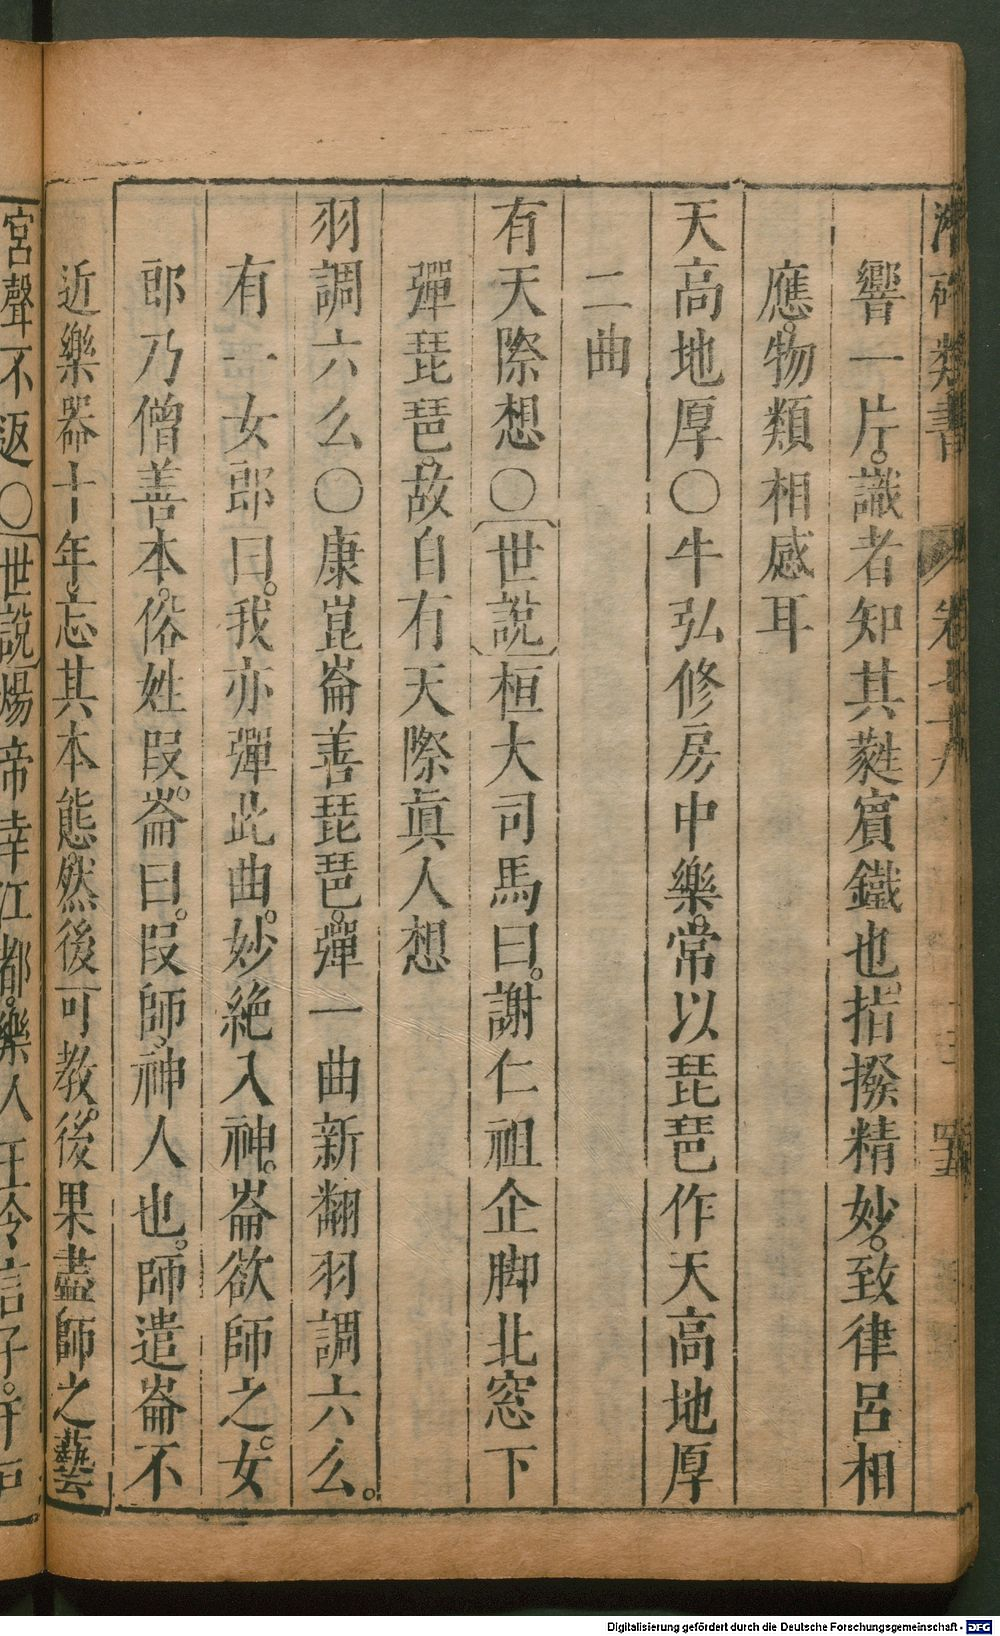 類書 卷
響一片。識者知其蕤賓鐵也。指撥精妙。致律呂相
應。物類相感耳
天高地厚○牛弘修房中樂。常以琵琶作天高地厚
二曲
有天際想○〔世說〕桓大司馬曰。謝仁祖企脚北窓下
彈琵琶。故自有天際眞人想
羽調六么○康崑崙善琵琶。彈一曲新翻羽調六么。
有一女郎曰。我亦彈此曲。妙絶入神。崙欲師之。女
郎乃僧善本。俗姓段。崙曰。段師。神人也。師遣崙不
近樂器十年。忘其本態。然後可教。後果盡師之藝
宮聲不返○〔世說〕煬帝幸江都。樂人王令言子。
Digitalisierung gefördert durch die Deutsche Forschungsgemeinschaft - DFG